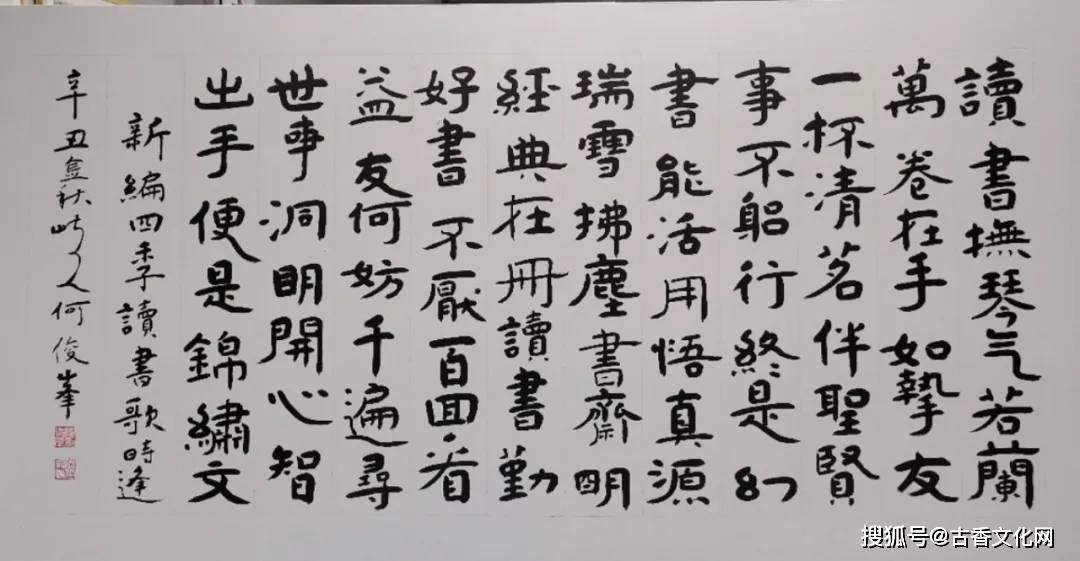 讀書撫琴气若蘭
萬卷在手如摯友
一杯清茗伴聖賢
事不躬行終是幻
書能活用悟真源
瑞雪拂塵書齋明
經典在冊讀書勤
好書不厭百回看
益友何妨千遍尋
世事洞明開心智
出手便是錦繡文
新編四季讀書歌時逢
辛丑孟秋人何俊峯
搜狐号@古香文化网